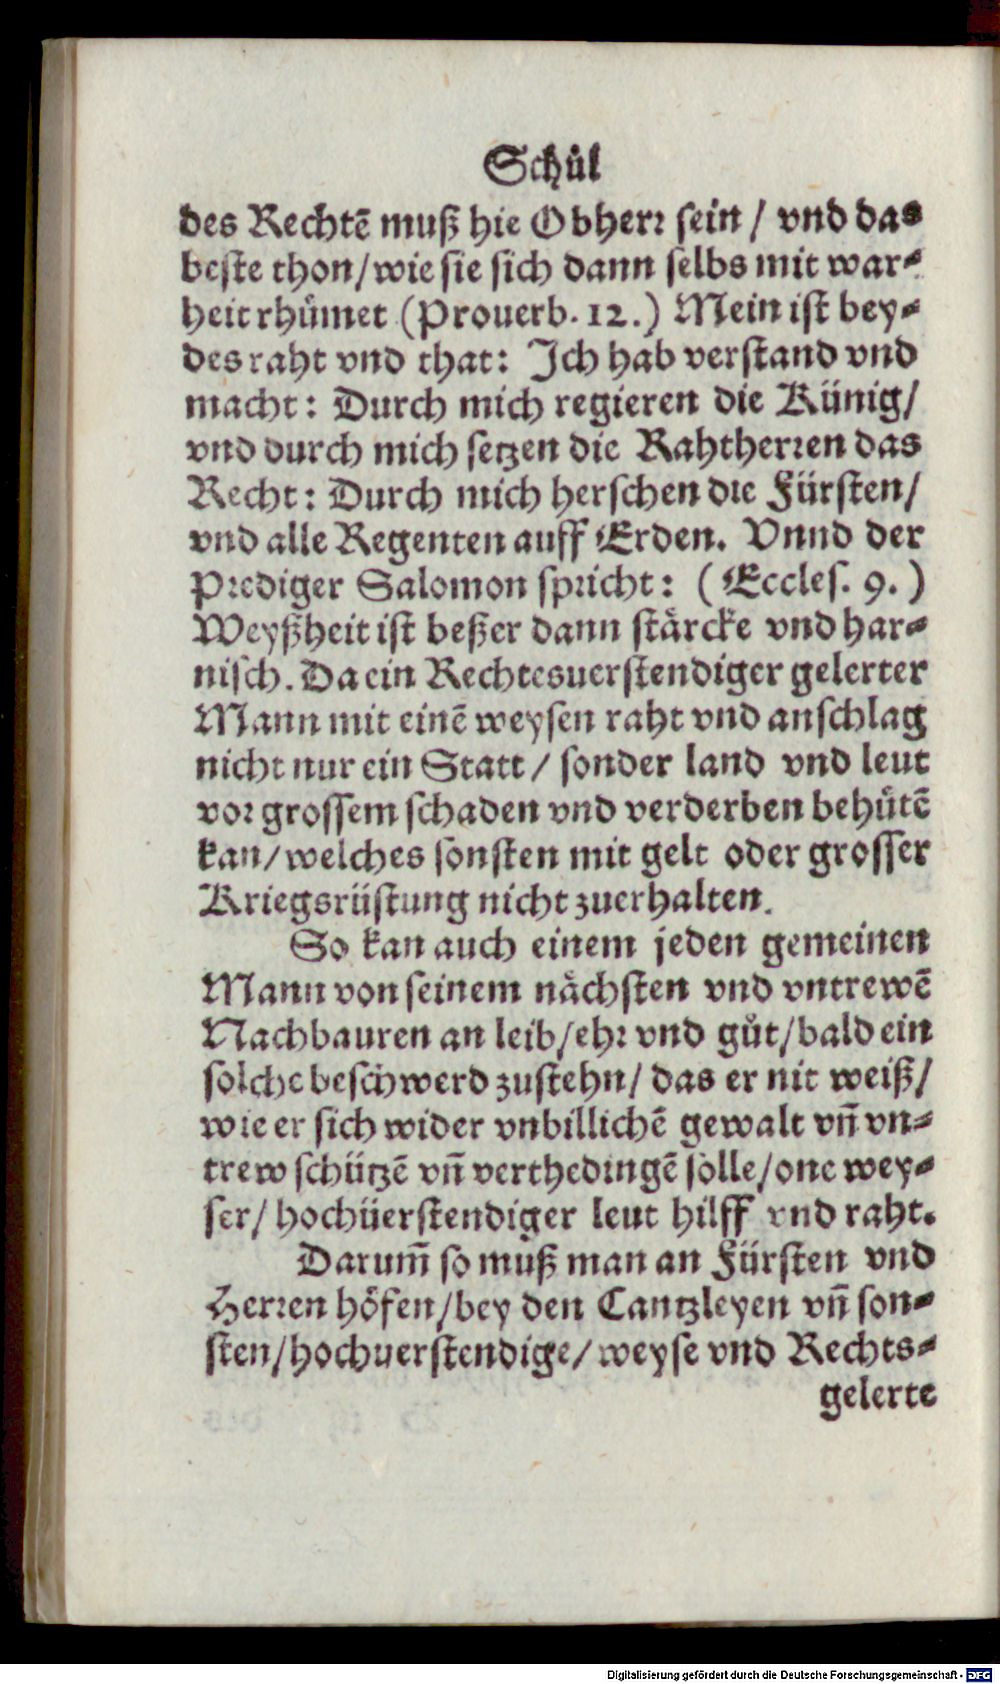 Schůl
des Rechtē muß hie Obherr sein / vnd das
beste thon/wie sie sich dann selbs mit war⸗
heit rhůmet (Prouerb. 12.) Mein ist bey⸗
des raht vnd that: Ich hab verstand vnd
macht: Durch mich regieren die Künig/
vnd durch mich setzen die Rahtherren das
Recht: Durch mich herschen die Fürsten/
vnd alle Regenten auff Erden. Vnnd der
Prediger Salomon spricht: (Eccles. 9.)
Weyßheit ist beßer dann stårcke vnd har⸗
nisch. Da ein Rechtesuerstendiger gelerter
Mann mit einē weysen raht vnd anschlag
nicht nur ein Statt / sonder land vnd leut
vor grossem schaden vnd verderben behůtē
kan/welches sonsten mit gelt oder grosser
Kriegsrüstung nicht zuerhalten.
So kan auch einem jeden gemeinen
Mann von seinem nåchsten vnd vntrewē
Nachbauren an leib/ehr vnd gůt/bald ein
solche beschwerd zustehn/ das er nit weiß/
wie er sich wider vnbillichē gewalt vn̄ vn⸗
trew schützē vn̄ verthedingē solle/one wey⸗
ser/ hochüerstendiger leut hilff vnd raht.
Darum̄ so muß man an Fürsten vnd
Herren höfen/bey den Cantzleyen vn̄ son⸗
sten/hochuerstendige/ weyse vnd Rechts⸗
gelerte
Digitalisierung gefördert durch die Deutsche Forschungsgemeinschaft - DFG